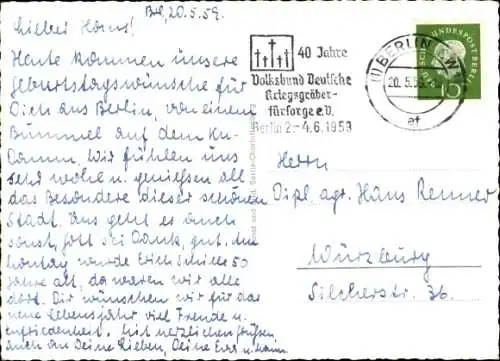 Bln, 20.5.59.
Lieber Hans!
Heute kommen unsere
Geburtstagswünsche für
Dich aus Berlin, von einem
Bummel auf dem Ku-
Damm. Wir fühlen uns
sehr wohl u. genießen all
das Besondere dieser schönen
Stadt. Uns geht es auch
sonst, Gott sei Dank, gut. Am
Montag wurde Erich 50
Jahre alt, da waren wir alle
dort. Dir wünschen wir für das
neue Lebensjahr viel Freude u.
Zufriedenheit. Mit herzlichen Grüßen
auch an Deine Lieben, Deine
40 Jahre
Volksbund Deutsche
Kriegsgräber-
fürsorge e.V.
Berlin 2.-4.6.1959
(1) BERLIN
20.5.59
at
DEUTSCHE BUNDESPOST BERLIN
10
Herrn
Dipl. agr. Hans Renner
Würzburg
Silcherstr. 36.